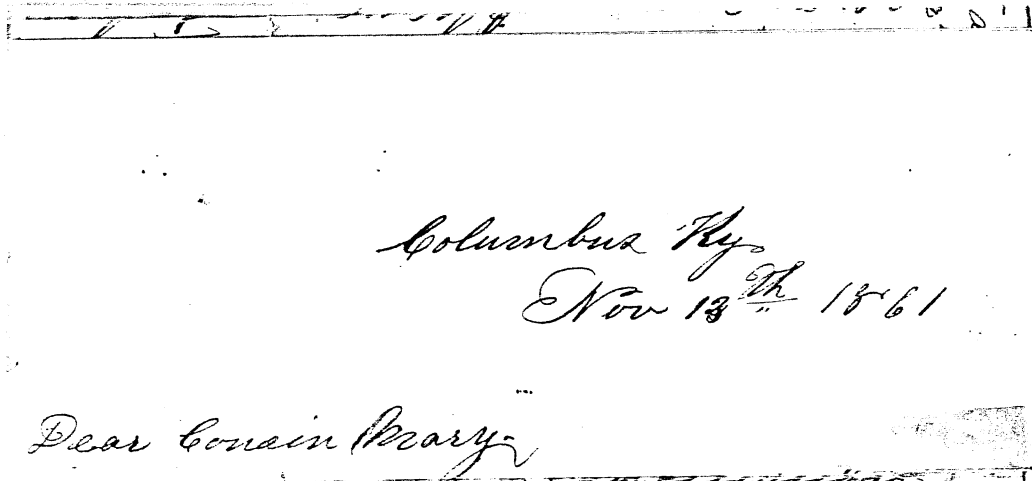 Columbus Ky.
Nov 13th 1861
Dear Cousin Mary,